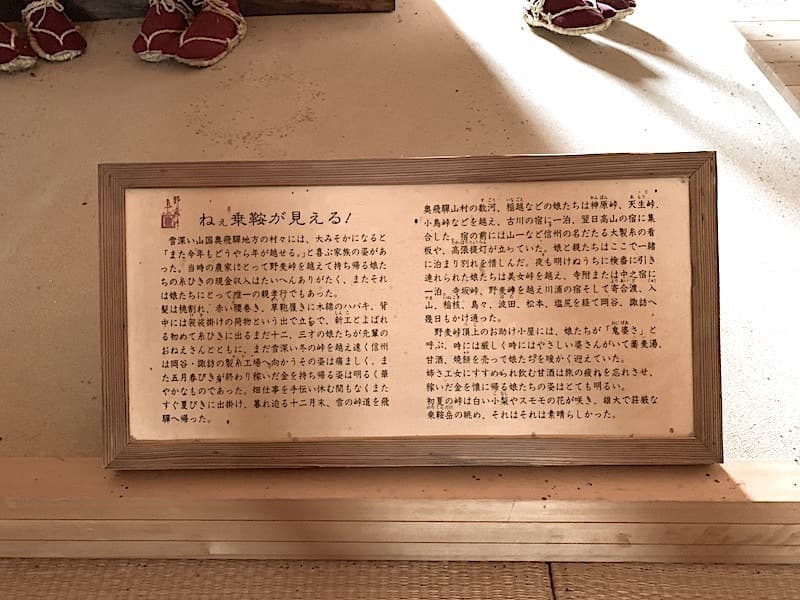 ねぇ乗鞍が見える!
雪深い山国奥飛騨地方の村々には、大みそかになると
「また今年もどうやら年が越せる。」と喜ぶ家族の姿があ
った。当時の農家にとって野麦峠を越えて持ち帰る娘た
ちの糸ひきの現金収入はたいへんありがたく、またそれ
は娘たちにとって唯一の親孝行でもあった。
髪は桃割れ、赤い腰巻き、草鞋履きに木綿のハバキ、背
中には袈裟掛けの荷物という出で立ちで、新工とよばれ
る初めて糸ひきに出るまだ十二、三才の娘たちが先輩の
おねえさんとともに、まだ雪深い冬の峠を越え遠く信州
は岡谷・諏訪の製糸工場へ向かうその姿は痛ましく、ま
た五月春びきが終わり稼いだ金を持ち帰る姿は明るく華
やかなものであった。畑仕事を手伝い休む間もなくまた
すぐ夏びきに出掛け、暮れ迫る十二月末、雪の峠道を飛
騨へ帰った。
奥飛騨山村の数河、稲越などの娘たちは神原峠、天生峠、
小鳥峠などを越え、古川の宿に一泊、翌日高山の宿に集
合した。宿の前には山一など信州の名だたる大製糸の看
板や、高張提灯が立っていた。娘と親たちはここで一緒
に泊まり別れを惜しんだ。夜も明けぬうちに検番に引き
連れられた娘たちは美女峠を越え、寺附または中之宿に
一泊、寺坂峠、野麦峠を越え川浦の宿そして寄合渡、入
山、稲核、島々、波田、松本、塩尻を経て岡谷、諏訪へ
幾日もかけ通った。
野麦峠頂上のお助け小屋には、娘たちが「鬼婆さ」と
呼ぶ、時には厳しく時にはやさしい婆さんがいて蕎麦湯、
甘酒、焼餅を売って娘たちを暖かく迎えていた。
姉さ工女にすすめられ飲む甘酒は旅の疲れを忘れさせ、
稼いだ金を懐に帰る娘たちの姿はとても明るい。
初夏の峠は白い小梨やスモモの花が咲き、雄大で荘厳な
乗鞍岳の眺め、それはそれは素晴らしかった。